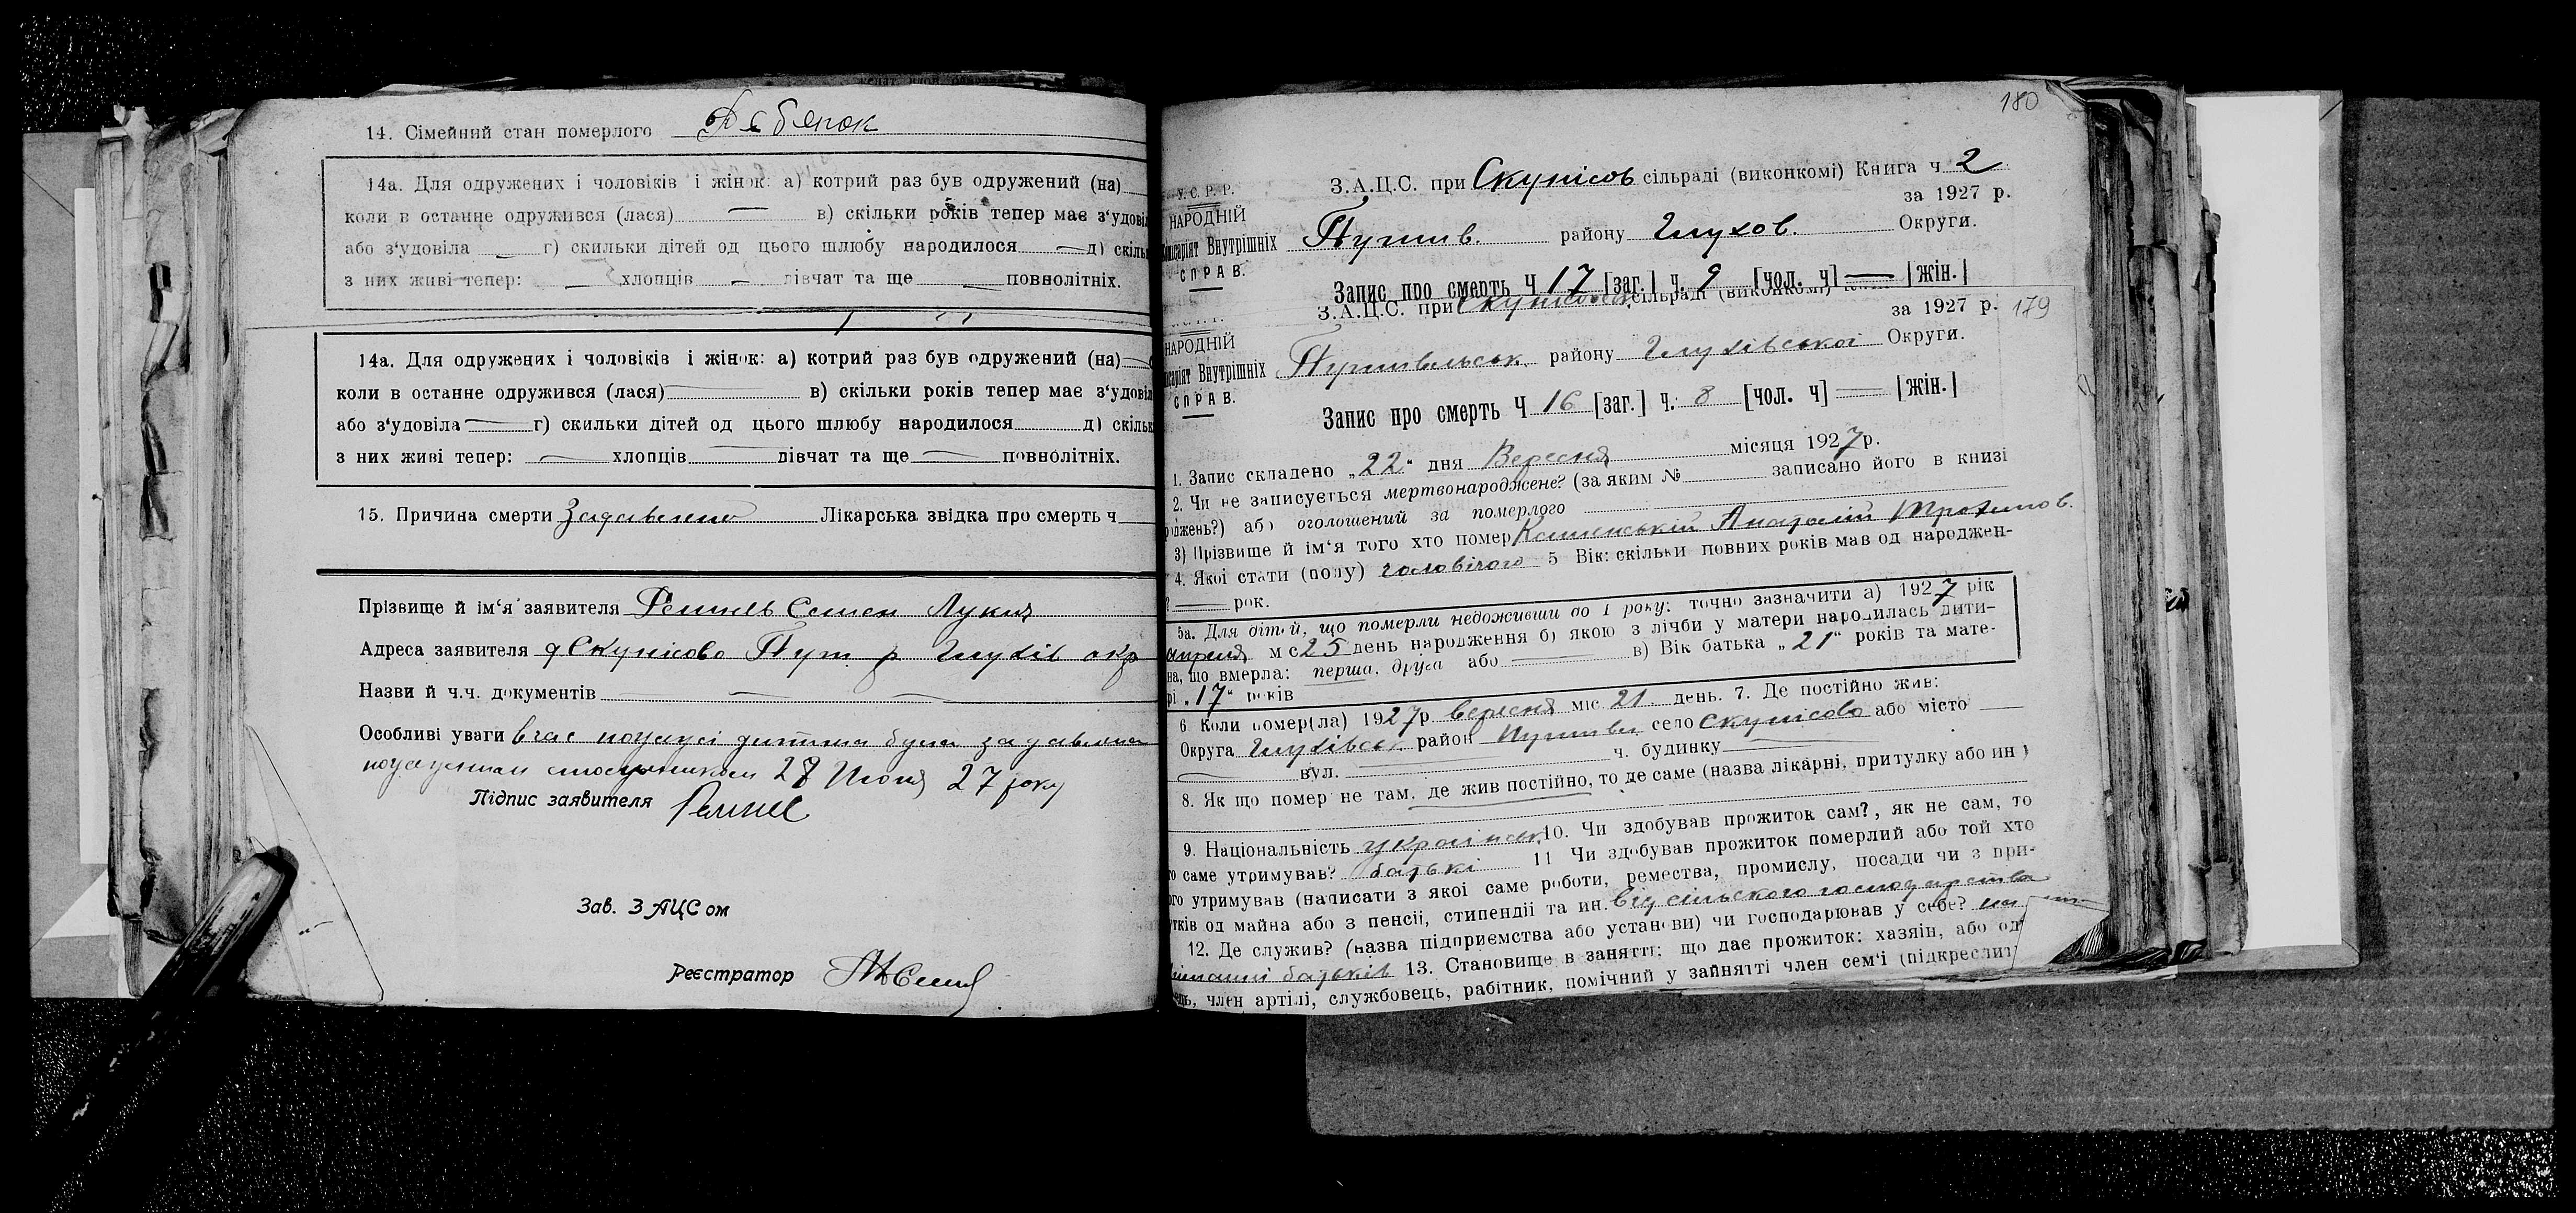 14. Сімейний стан померлого
14а. Для одружених і чоловіків і жінок: а) котрий раз був одружений (на)
коли в останне одружився (лася) — в) скільки років тепер має з'удові
або з'удовіла — г) скильки дітей од цього шлюбу народилося — д) скіль
з них живі тепер: — хлопців — дівчат та ще — повнолітніх.
14а. Для одружених і чоловіків і жінок: а) котрий раз був одружений (на) —
коли в останне одружився (лася) — в) скільки років тепер має з'удовіл
або з'удовіла — г) скильки дітей од цього шлюбу народилося д) скільк
з них живі тепер: — хлопців — дівчат та ще — повнолітніх.
15. Причина смерти Задавлено Лікарська звідка про смерть ч
Прізвище й ім'я заявителя Семен
Адреса заявителя Скунісово Пут р Глухів окр
Назви й ч.ч. документів — —
Особливі уваги дитина була задавлена
27 року
Підпис заявителя
Зав. ЗАЦСом
Реєстратор
180
У.С.Р.Р.
НАРОДНІЙ
Комісаріят Внутрішніх
СПРАВ.
З.А.Ц.С. при Скунісов сільраді (виконкомі) Книга ч 2
за 1927 р.
Путив. району Глухов. Округи.
Запис про смерть Ч 17 [заг.] ч. 9 [чол. ч] — [жін.]
З.А.Ц.С. при сільраді (виконкомі)
за 1927 р. 179
НАРОДНІЙ
саріят Внутрішніх
СПРАВ.
Путивльськ району Глухівської Округи.
Запис про смерть Ч 16 [заг.] ч. 8 [чол. ч] — [жін.]
1. Запис складено „22" дня Вересня місяця 1927 р.
2. Чи не записується мертвонароджене? (за яким № записано його в книзі
роджень?) або оголошений за померлого
3) Прізвище й ім'я того хто помер Анатолій
4. Якої стати (полу) чоловічого 5 Вік: скільки повних років мав од народжен-
? — рок.
5а. Для дітей, що померли недоживши до 1 року: точно зазначити а) 1927 рік
апреля м с 25 день народження б) якою з лічби у матери народилась дити-
на, що вмерла: перша, друга або — в) Вік батька „21" років та мате-
рі „17" років
6 Коли помер(ла) 1927 р вересня міс 21 день. 7. Де постійно жив:
Округа Глухівськ район Путивл село Скунісово або місто —
— вул. ч. будинку —
8. Як що помер не там, де жив постійно, то де саме (назва лікарні, притулку або ин )
9. Національність українськ 10. Чи здобував прожиток сам?, як не сам, то
о саме утримував? батькі 11 Чи здобував прожиток померлий або той хто
ого утримував (написати з якої саме роботи, ремества, промислу, посади чи з при-
утків од майна або з пенсії, стипендії та ин. від сільського господарства
12. Де служив? (назва підприємства або установи) чи господарював у себе?
батьків 13. Становище в занятті: що дає прожиток: хазяін, або од
ець, член артілі, службовець, рабітник, помічний у зайнятті член сем'ї (підкреслит